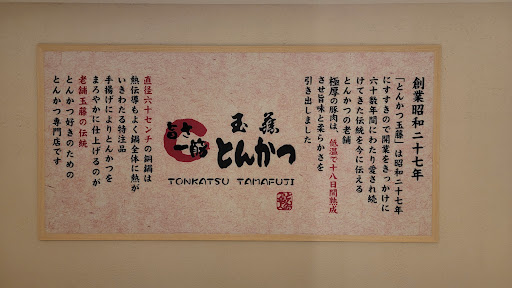 創業昭和二十七年
「とんかつ玉藤」は昭和二十七年
にすすきので開業をきっかけに
六十数年間にわたり愛され続
けてきた伝統を今に伝える
とんかつの老舗
極厚の豚肉は、低温で十八日間熟成
させ旨味と柔らかさを
引き出しました
玉藤
とんかつ
旨さ
一番
TONKATSU TAMAFUJI
直径六十センチの銅鍋は
熱伝導もよく鍋全体に熱が
いきわたる特注品
手揚げによりとんかつを
まろやかに仕上げるのが
老舗玉藤の伝統
とんかつ好きのための
とんかつ専門店です